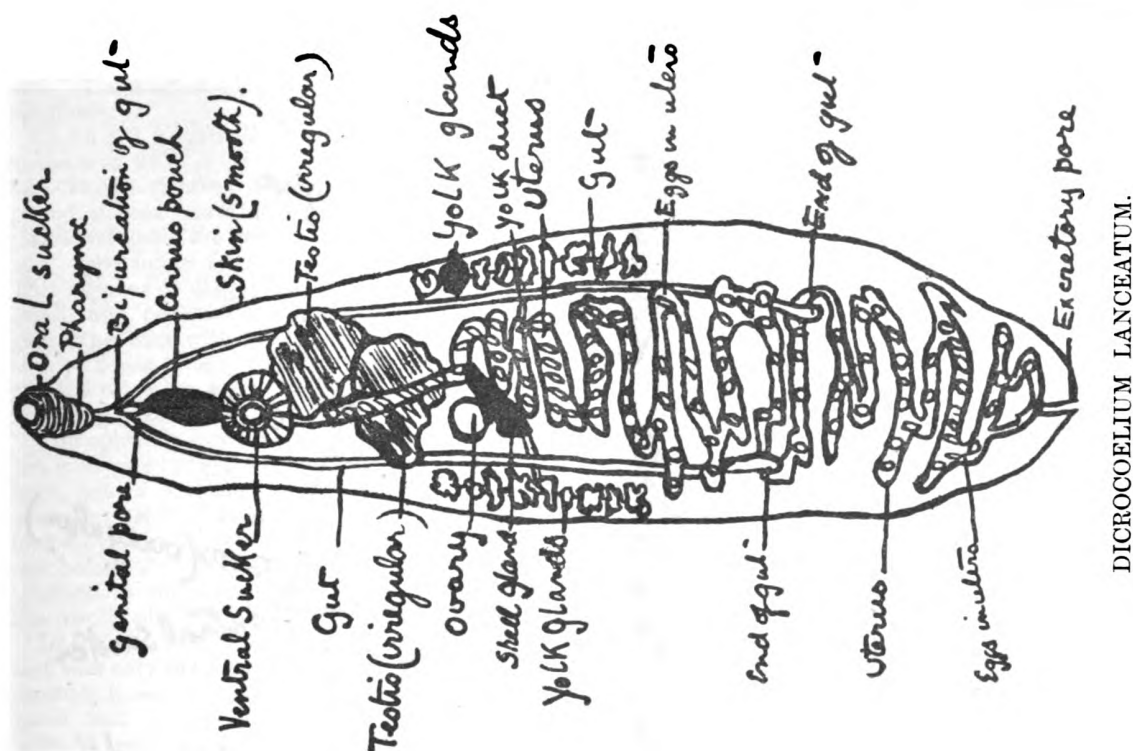 Oral sucker
Pharynx
Bifurcation of gut
Cerrus pouch
Skin (smooth).
Testis (irregular)
Yolk glands
Yolk duct
Uterus
Gut
Eggs in utero
End of gut
Excretory pore
Genital pore
Ventral Sucker
Gut
Testis (irregular)
Ovary
Shell gland
Yolk glands
End of gut
Uterus
Eggs in utero
DICROCOELIUM LANCEATUM.